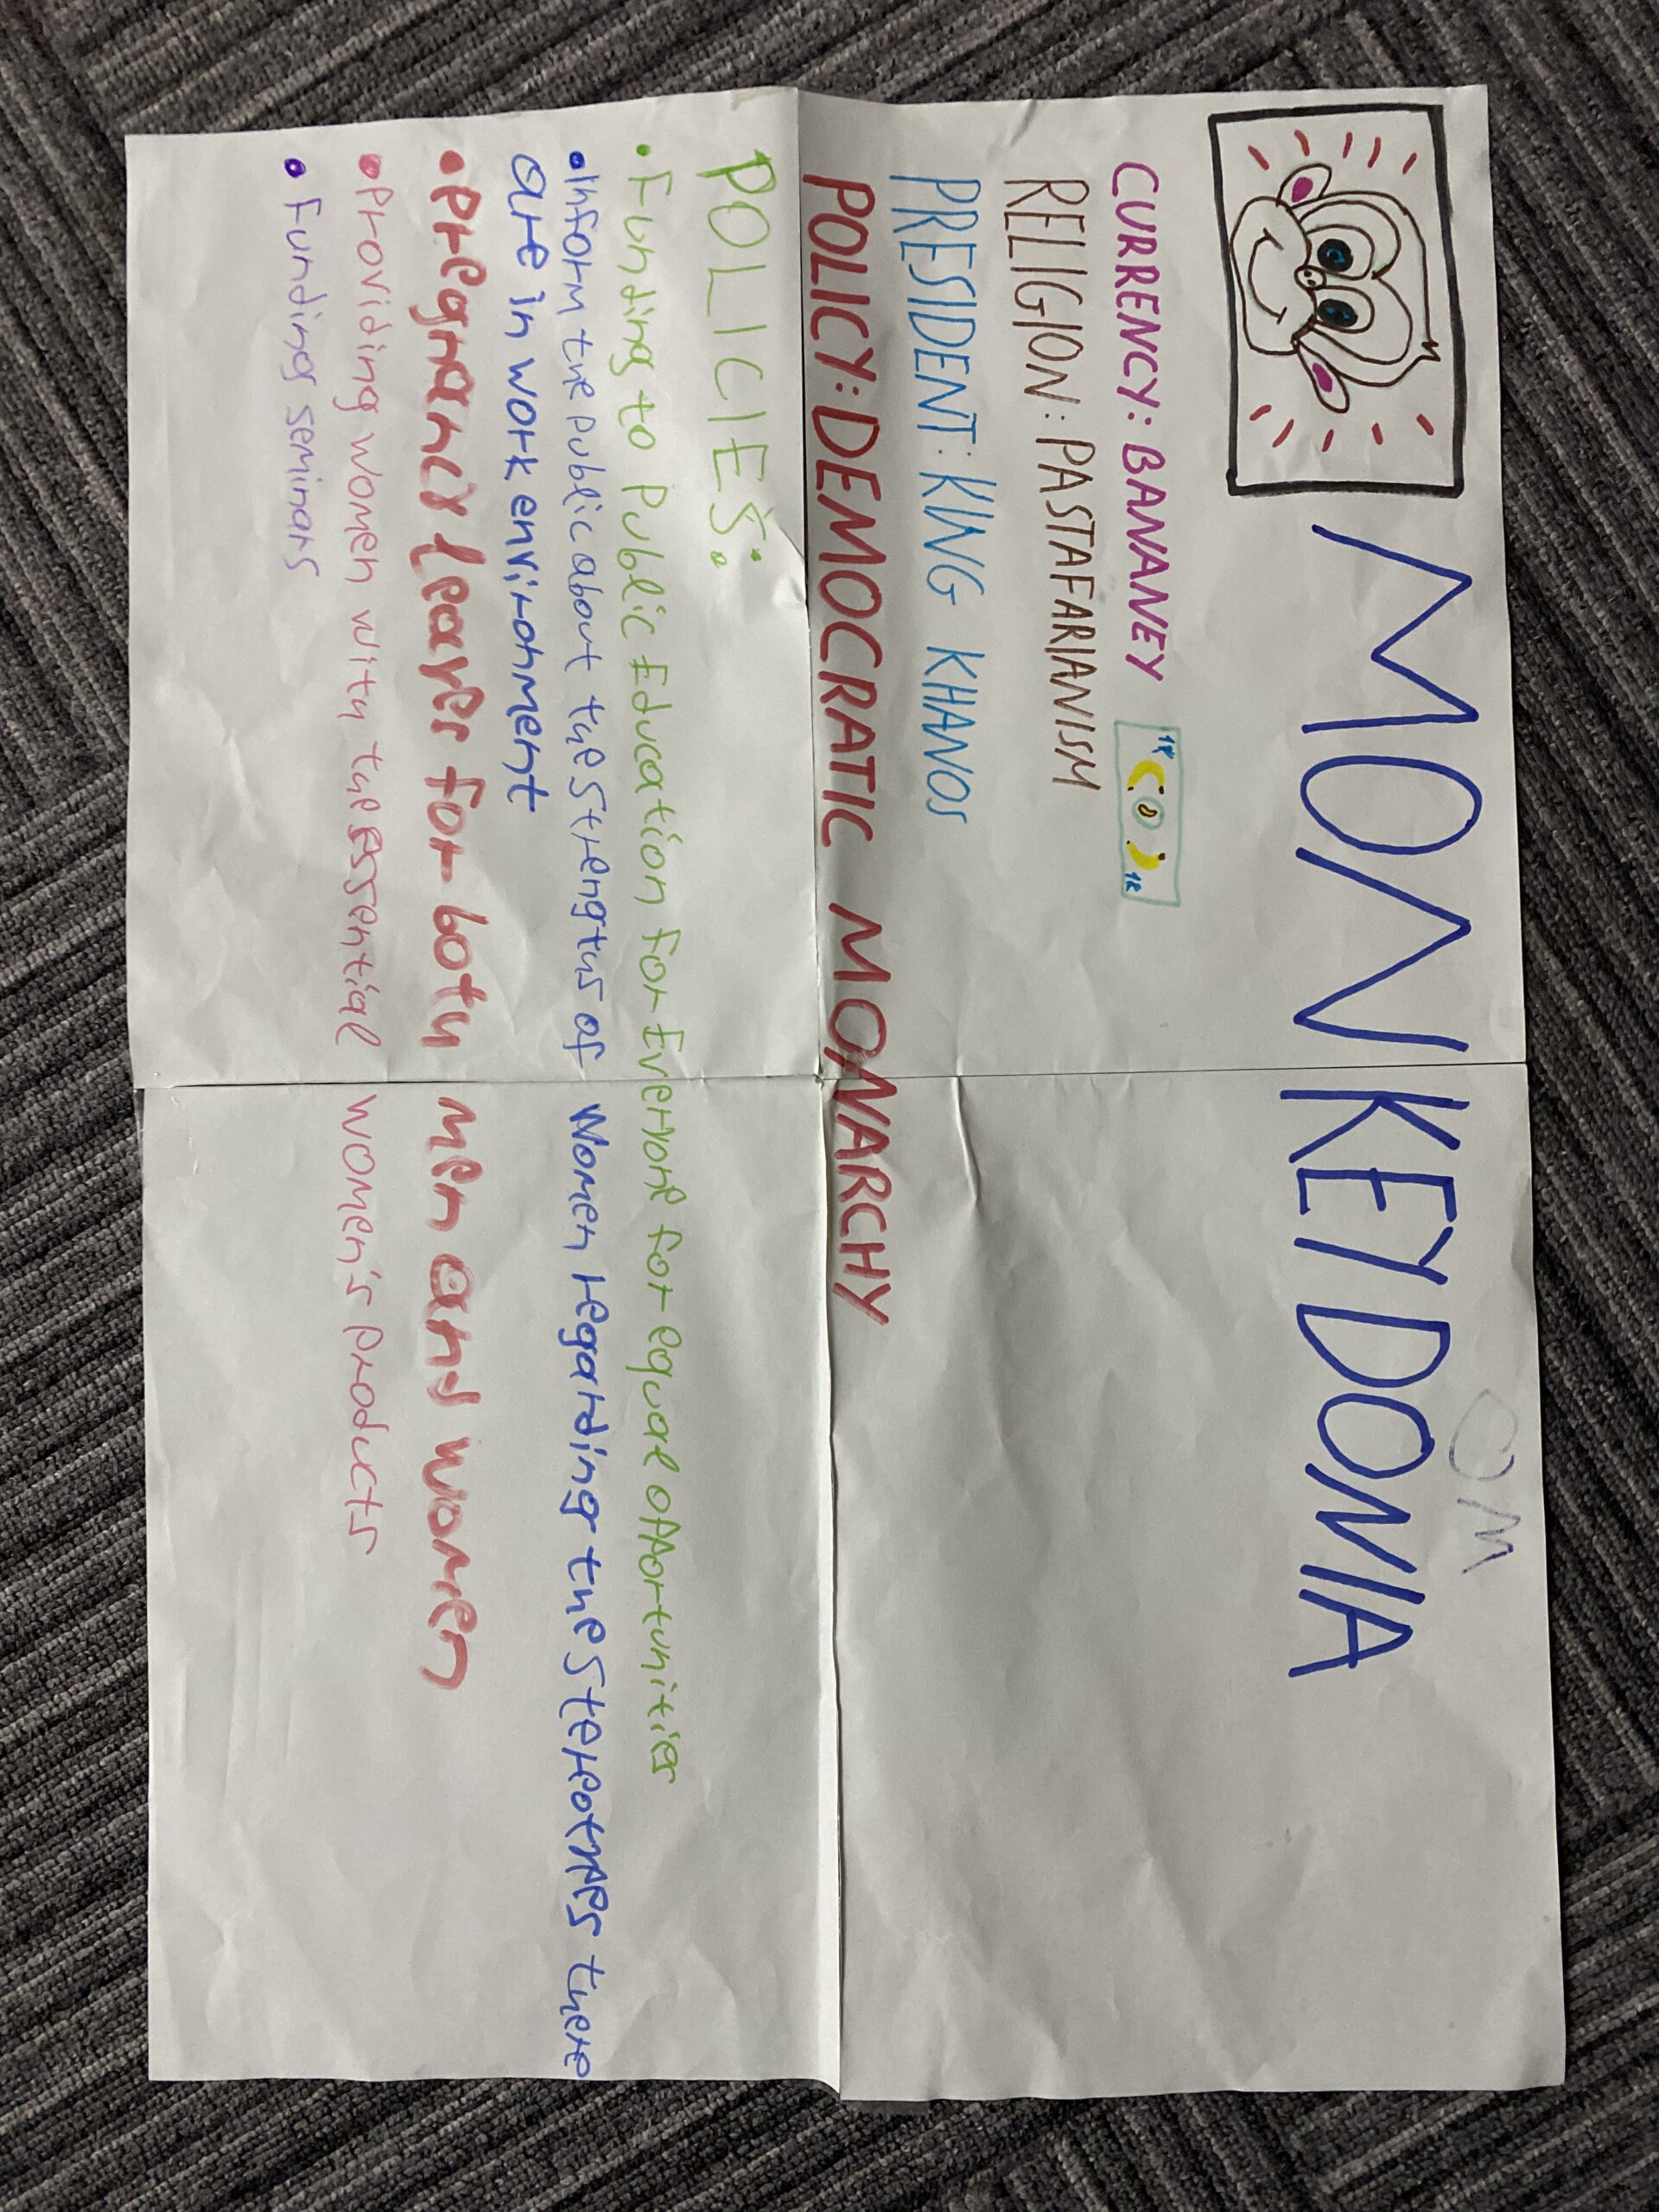 MONKEYDONIA
OM
CURRENCY: BANANEY
RELIGION: PASTAFARIANISM
PRESIDENT: KING KHANOS
POLICY: DEMOCRATIC MONARCHY
POLICIES:
• Funding to Public Education for Everyone for equal opportunities
• Inform the public about the strengths of women regarding the stereotypes there
are in work environment
• Pregnancy leaves for both men and women
• Providing women with the essential women's products
• Funding seminars